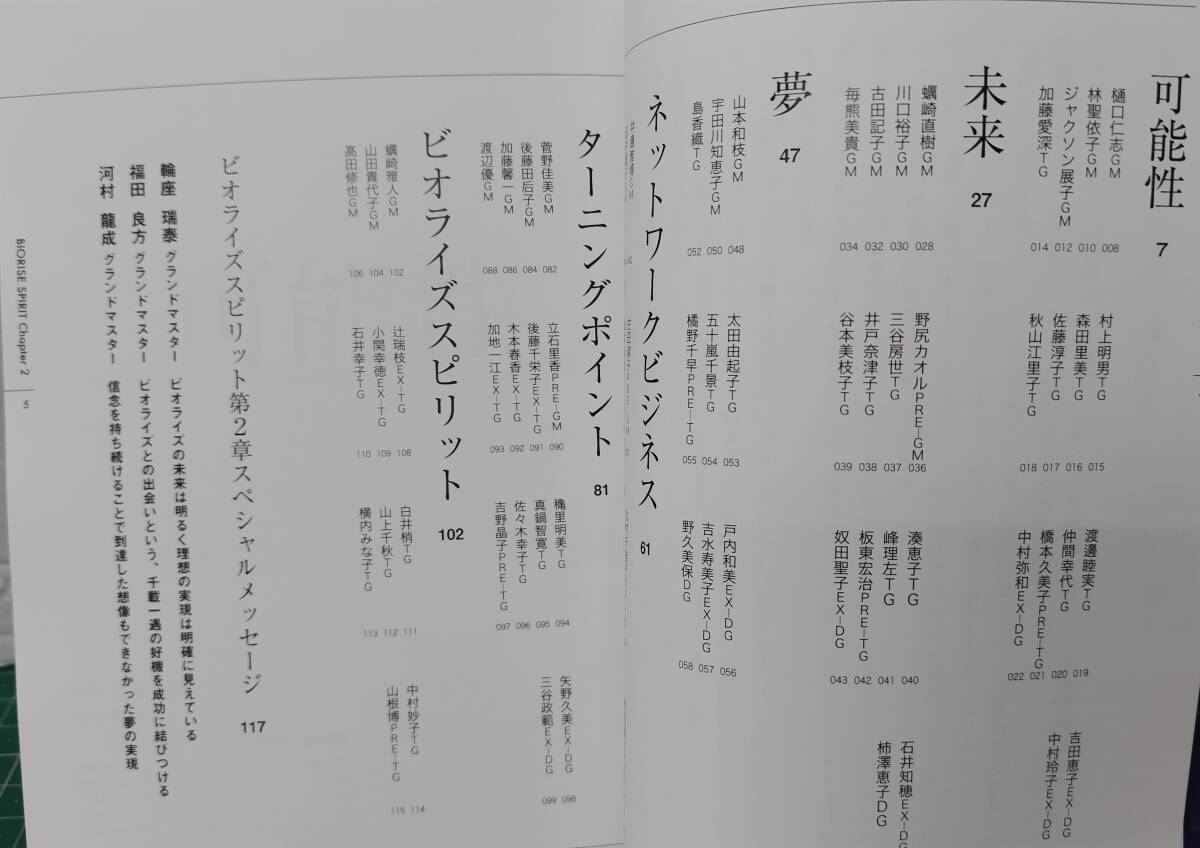 可能性
7
樋口仁志GM 008
林聖依子GM 010
ジャクソン展子GM 012
加藤愛深TG 014
村上明男TG 015
森田里美TG 016
佐藤淳子TG 017
秋山江里子TG 018
渡邊睦実TG 019
仲間幸代TG 020
橋本久美子PRE-TG 021
中村弥和EX-DG 022
吉田恵子EX-DG
中村玲子EX-DG
未来
27
蠣崎直樹GM 028
川口裕子GM 030
古田記子GM 032
毎熊美貴GM 034
野尻カオルPRE-GM 036
三谷房世TG 037
井戸奈津子TG 038
谷本美枝子TG 039
湊恵子TG 040
峰理左TG 041
板東宏治PRE-TG 042
奴田聖子EX-DG 043
石井知穂EX-DG
柿澤恵子DG
夢
47
山本和枝GM 048
宇田川知恵子GM 050
島香織TG 052
太田由起子TG 053
五十嵐千景TG 054
橘野千早PRE-TG 055
戸内和美EX-DG 056
吉水寿美子EX-DG 057
野久美保DG 058
ネットワークビジネス
61
ターニングポイント
81
菅野佳美GM 082
後藤田后子GM 084
加藤馨一GM 086
渡辺優GM 088
立石里香PRE-GM 090
後藤千栄子EX-TG 091
木本春香EX-TG 092
加地一江EX-TG 093
穐里明美TG 094
真鍋智寛TG 095
佐々木幸子TG 096
吉野晶子PRE-TG 097
矢野久美EX-DG 098
三谷政範EX-DG 099
ビオライズスピリット
102
蠣崎雅人GM 102
山田貴代子GM 104
髙田修也GM 106
辻瑞枝EX-TG 108
小関幸徳EX-TG 109
石井幸子TG 110
白井梢TG 111
山上千秋TG 112
横内みな子TG 113
中村妙子TG 114
山根博PRE-TG 115
ビオライズスピリット第2章スペシャルメッセージ
117
輪座 瑞泰 グランドマスター ビオライズの未来は明るく理想の実現は明確に見えている
福田 良方 グランドマスター ビオライズとの出会いという、千載一遇の好機を成功に結びつける
河村 龍成 グランドマスター 信念を持ち続けることで到達した想像もできなかった夢の実現
BIORISE SPIRIT Chapter 2
5